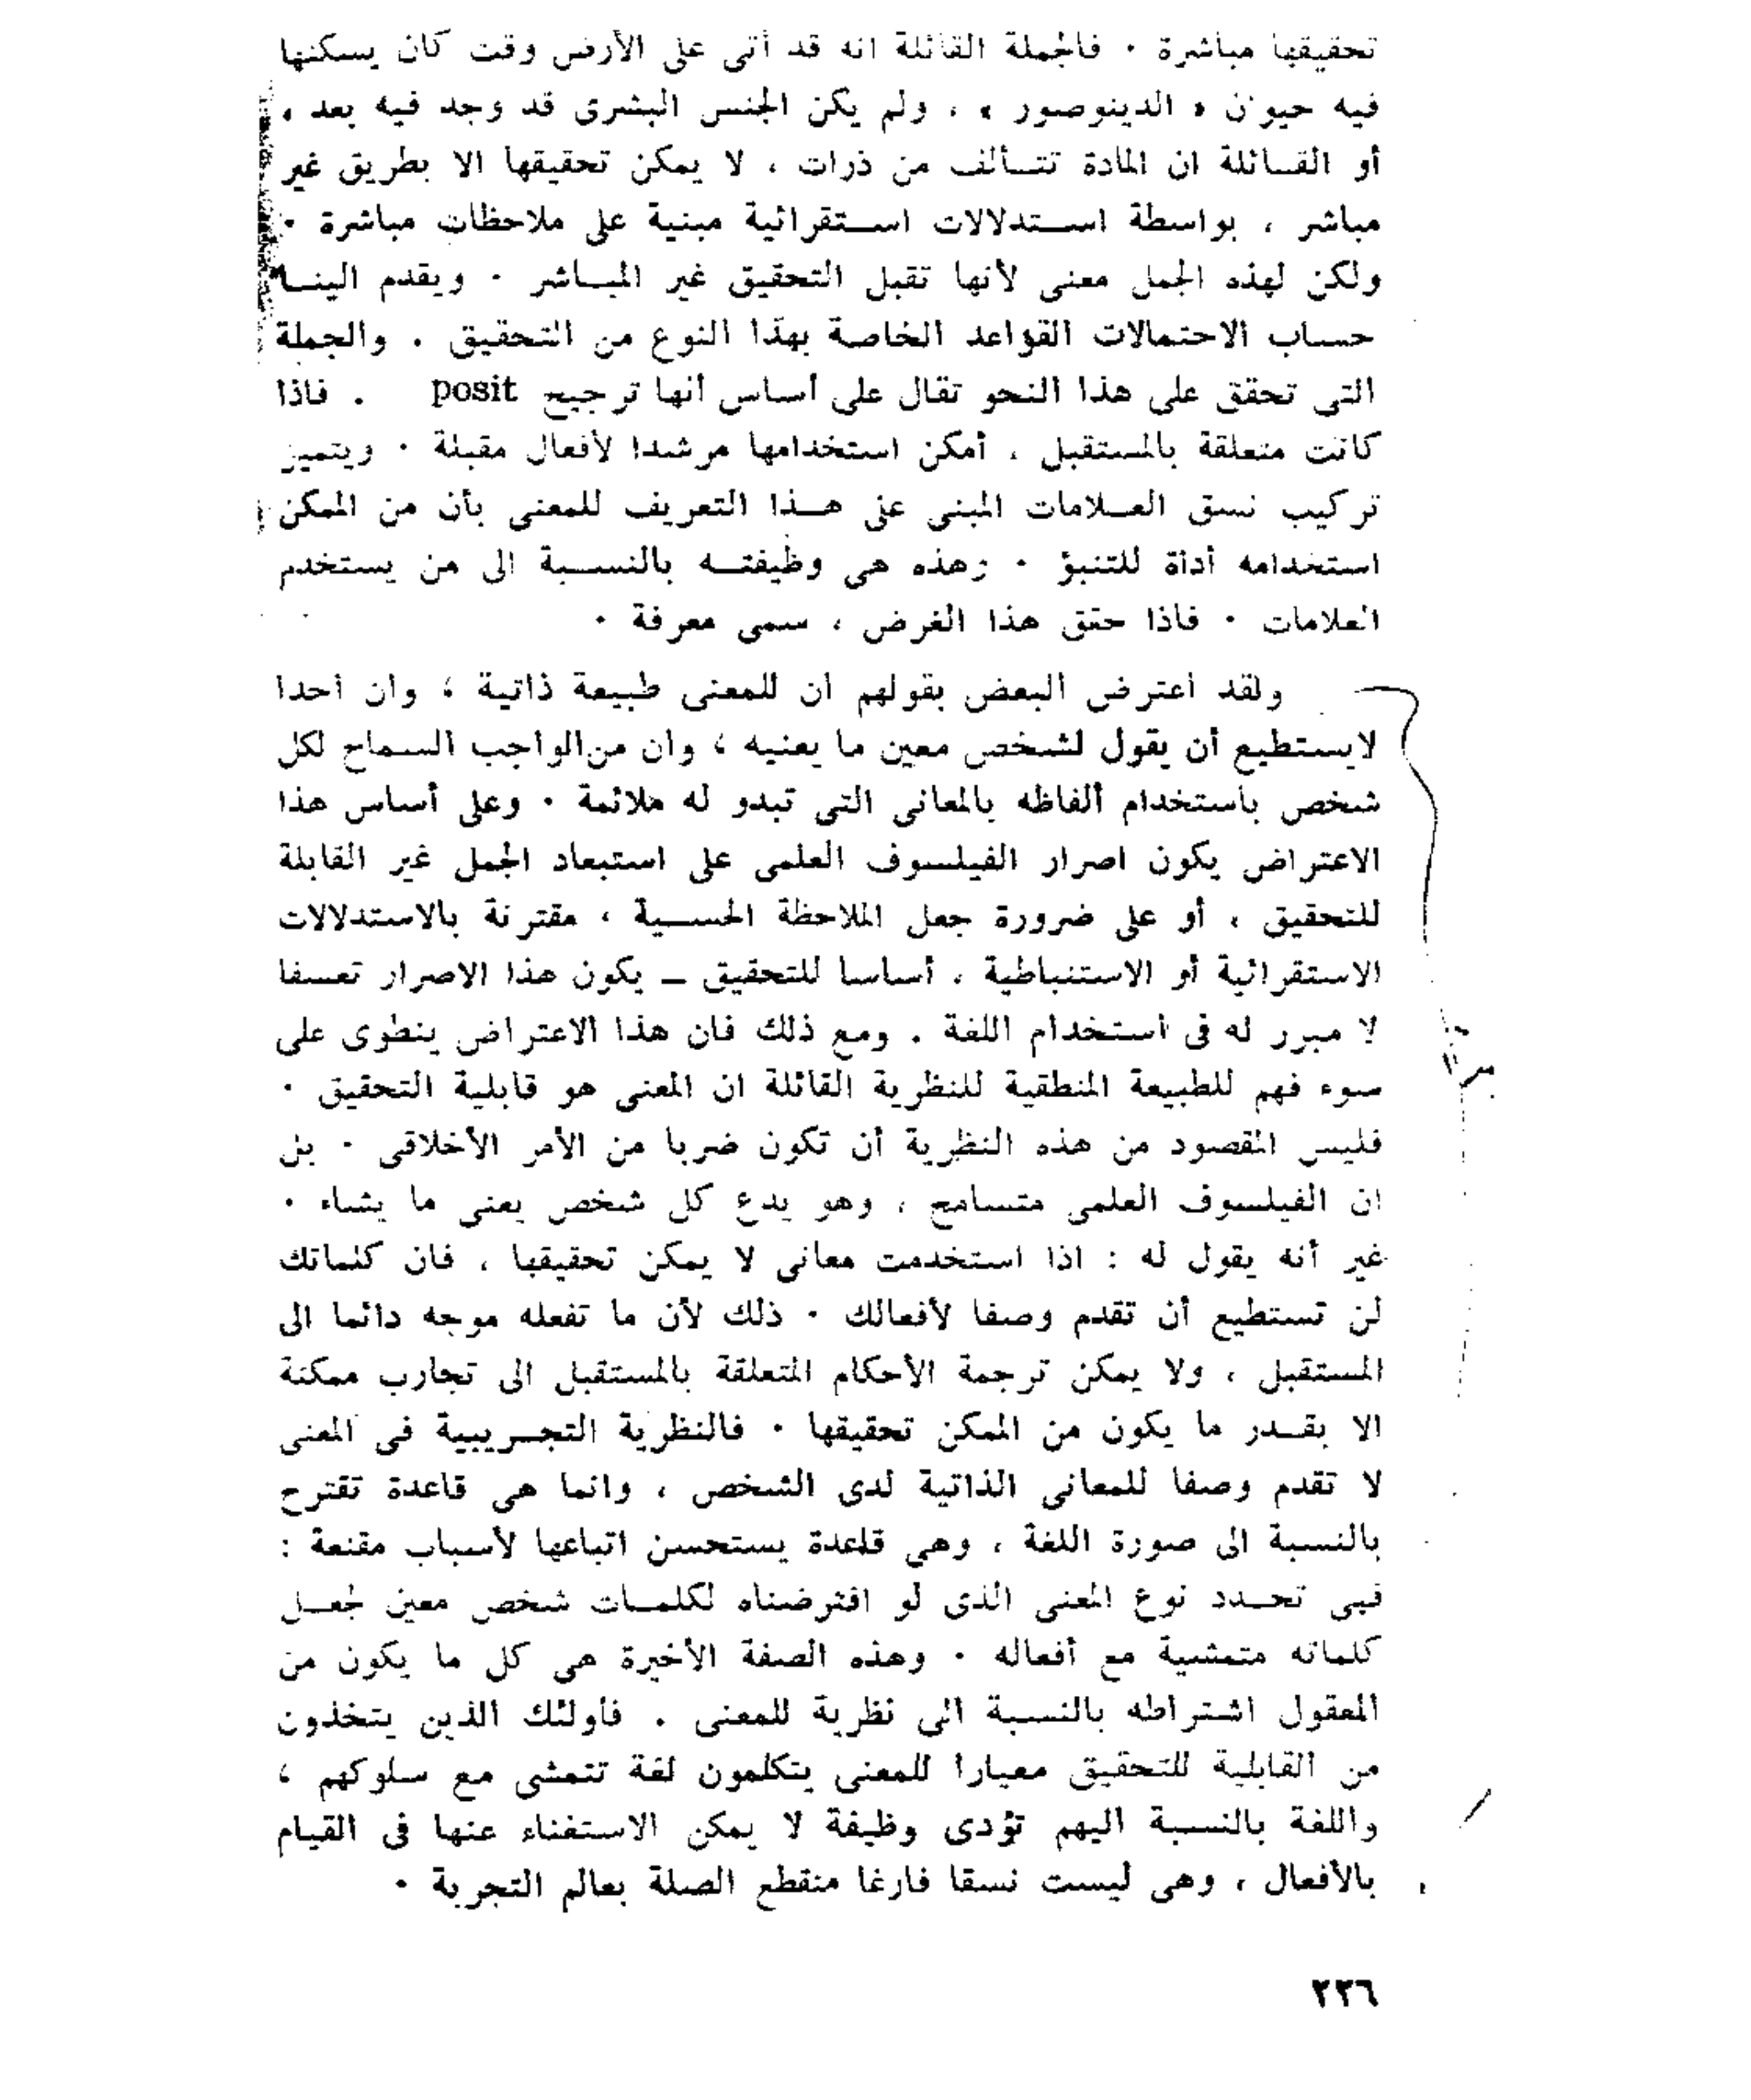 تحقيقها مباشرة . فالجملة القائلة انه قد أتى على الأرض وقت كان يسكنها
فيه حيوان « الدينوصور » ، ولم يكن الجنس البشرى قد وجد فيه بعد ،
أو القسائلة ان المادة تتسألف من ذرات ، لا يمكن تحقيقها الا بطريق غير
مباشر ، بواسطة استدلالات استقرائية مبنية على ملاحظات مباشرة .
ولكن لهذه الجمل معنى لأنها تقبل التحقيق غير المباشر . ويقدم الينا
حساب الاحتمالات القواعد الخاصة بهذا النوع من التحقيق . والجملة
التى تحقق على هذا النحو تقال على أساس أنها ترجيح posit . فاذا
كانت متعلقة بالمستقبل ، أمكن استخدامها مرشدا لأفعال مقبلة . ويتميز
تركيب نسق العلامات المبنى على هذا التعريف للمعنى بأن من الممكن
استخدامه أداة للتنبؤ . وهذه هى وظيفته بالنسبة الى من يستخدم
العلامات . فاذا حقق هذا الغرض ، سمى معرفة .
ولقد اعترض البعض بقولهم ان للمعنى طبيعة ذاتية ، وان احدا
لايستطيع أن يقول لشخص معين ما يعنيه ، وان من الواجب السماح لكل
شخص باستخدام ألفاظه بالمعانى التى تبدو له ملائمة . وعلى أساس هذا
الاعتراض يكون اصرار الفيلسوف العلمى على استبعاد الجمل غير القابلة
للتحقيق ، أو على ضرورة جعل الملاحظة الحسية ، مقترنة بالاستدلالات
الاستقرائية أو الاستنباطية ، أساسا للتحقيق ــ يكون هذا الاصرار تعسفا
لا مبرر له فى استخدام اللغة . ومع ذلك فان هذا الاعتراض ينطوى على
سوء فهم للطبيعة المنطقية للنظرية القائلة ان المعنى هو قابلية التحقيق .
فليس المقصود من هذه النظرية أن تكون ضربا من الأمر الأخلاقى . بل
ان الفيلسوف العلمى متسامح ، وهو يدع كل شخص يعنى ما يشاء .
غير أنه يقول له : اذا استخدمت معانى لا يمكن تحقيقها ، فان كلماتك
لن تستطيع أن تقدم وصفا لأفعالك . ذلك لأن ما تفعله موجه دائما الى
المستقبل ، ولا يمكن ترجمة الأحكام المتعلقة بالمستقبل الى تجارب ممكنة
الا بقدر ما يكون من الممكن تحقيقها . فالنظرية التجريبية فى المعنى
لا تقدم وصفا للمعانى الذاتية لدى الشخص ، وانما هى قاعدة تقترح
بالنسبة الى صورة اللغة ، وهى قاعدة يستحسن اتباعها لأسباب مقنعة :
فهى تحدد نوع المعنى الذى لو افترضناه لكلمات شخص معين لجعل
كلماته متمشية مع أفعاله . وهذه الصفة الأخيرة هى كل ما يكون من
المعقول اشتراطه بالنسبة الى نظرية للمعنى . فأولئك الذين يتخذون
من القابلية للتحقيق معيارا للمعنى يتكلمون لغة تتمشى مع سلوكهم ،
واللغة بالنسبة اليهم تؤدى وظيفة لا يمكن الاستغناء عنها فى القيام
بالأفعال ، وهى ليست نسقا فارغا منقطع الصلة بعالم التجربة .
٢٢٦